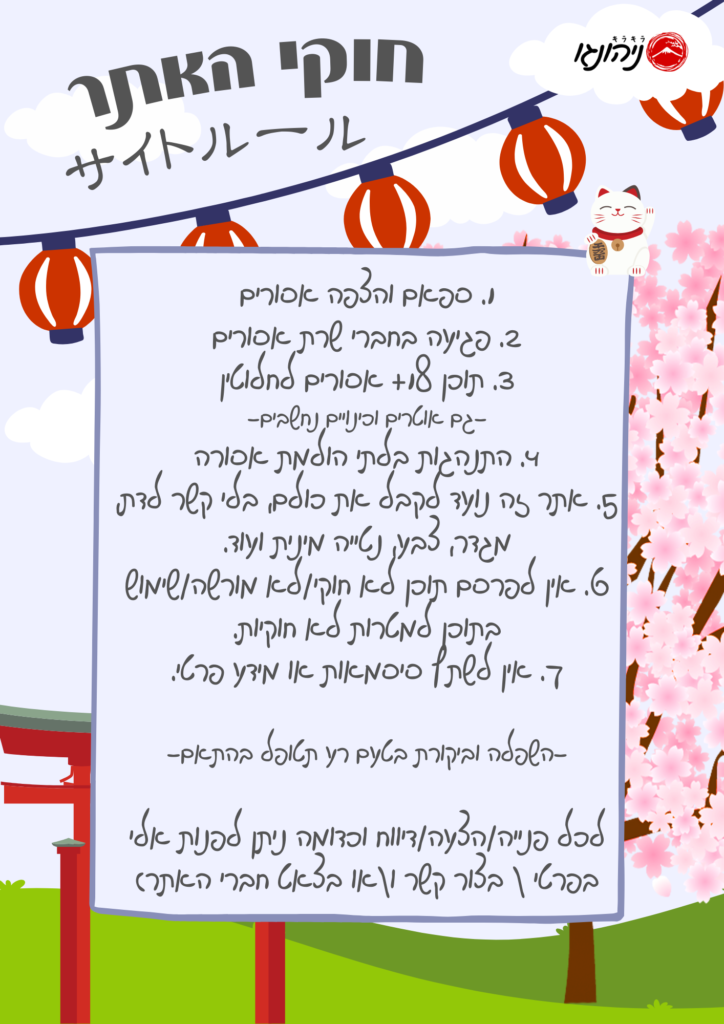 חוקי האתר
サイトルール
キラキラ
ניהונגו
1. ספאם והצפה אסורים
2. פגיעה בחברי שרת אסורים
3. תוכן 18+ אסורים לחלוטין
-גם אווטרים וכינויים נחשבים-
4. התנהגות בלתי הולמת אסורה
5. אתר זה נועד לקבל את כולם, בלי קשר לדת,
מגדר, צבע, נטייה מינית ועוד.
6. אין לפרסם תוכן לא חוקי/לא מורשה/שימוש
בתוכן למטרות לא חוקיות.
7. אין לשתף סיסמאות או מידע פרטי.
-השפלה וביקורת בטעם רע תטופל בהתאם-
לכל פנייה/הצעה/דיווח וכדומה ניתן לפנות אליי
בפרטי \ בצור קשר ו\או בצאט חברי האתר)